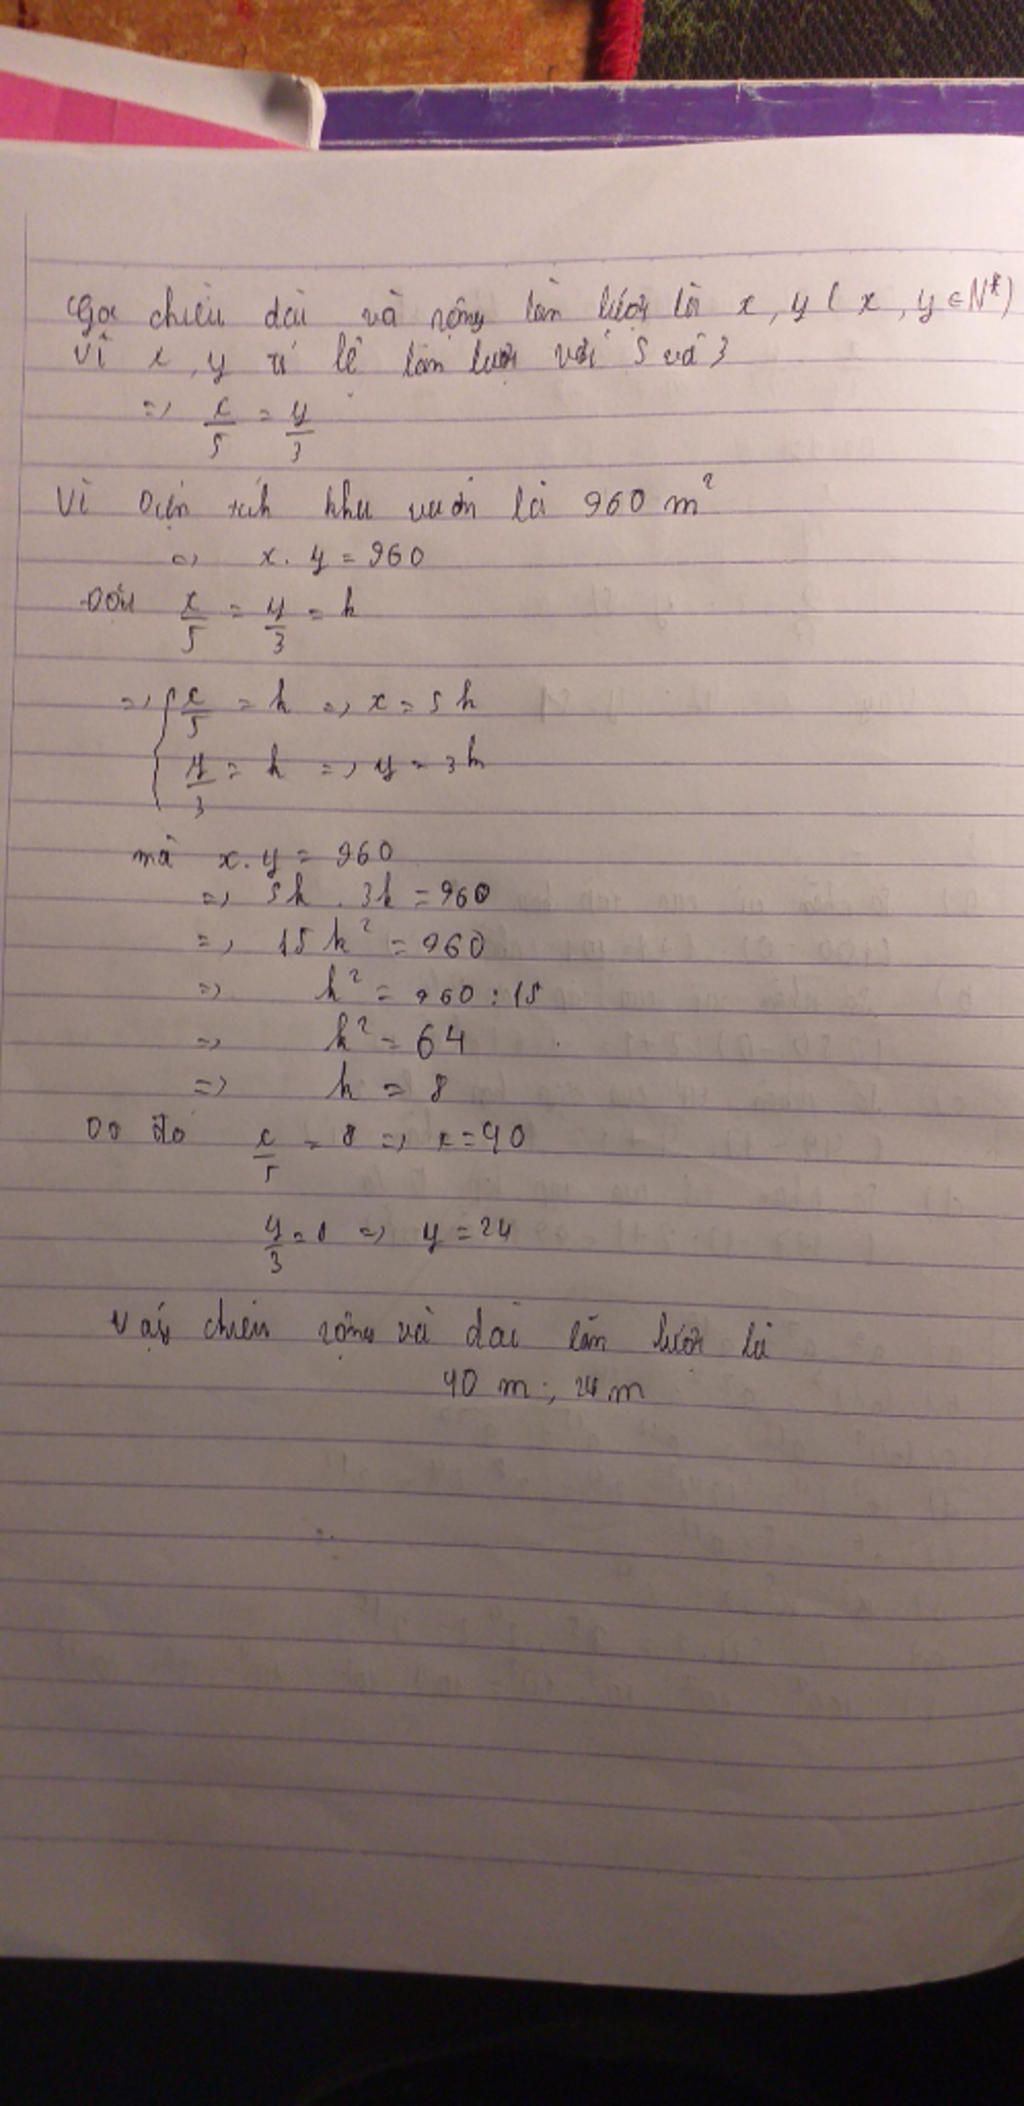 Gọi chiều dài và rộng lần lượt là x, y ( x, y ∈ N*)
Vì x, y tỉ lệ lần lượt với 5 và 3
=> x/5 = y/3
Vì Diện tích khu vườn là 960 m²
=> x. y = 960
Đặt x/5 = y/3 = k
=> { x/5 = k => x = 5k
y/3 = k => y = 3k
mà x. y = 960
=> 5k . 3k = 960
=> 15 k² = 960
=> k² = 960 : 15
=> k² = 64
=> k = 8
Do đó x/5 = 8 => x = 40
y/3 = 8 => y = 24
Vậy chiều rộng và dài lần lượt là
40 m ; 24 m